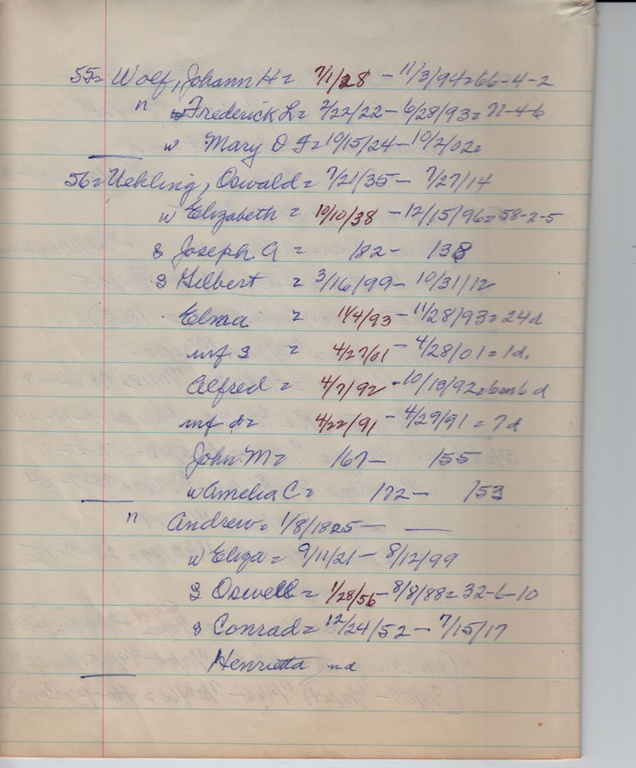 55= Wolf, Johann H = 7/1/28 - 11/3/94=66-4-2
n Frederick L = 2/22/22 - 6/28/93=71-4-6
w Mary D F=10/15/24-10/2/02=
56= Uehling, Oswald = 7/21/35 - 7/27/14
w Elizabeth = 10/10/38 - 12/15/96=58-2-5
s Joseph A = 182 - 138
s Gilbert = 3/16/99 - 10/31/12
= 11/4/93 - 11/28/93=24d
inf s = 4/27/01 - 4/28/01=1d.
Alfred = 4/7/92 - 10/13/92=6m6d
inf d= 4/22/91 - 4/29/91 = 7d
John M= 167- 155
w Amelia C= 172 - 153
n Andrew= 1/8/1825 — —
w Eliza = 9/11/21 - 8/12/99
s Oswell = 1/28/56 - 8/8/88= 32-6-10
s Conrad= 12/24/52 - 7/15/17
Henrietta nd